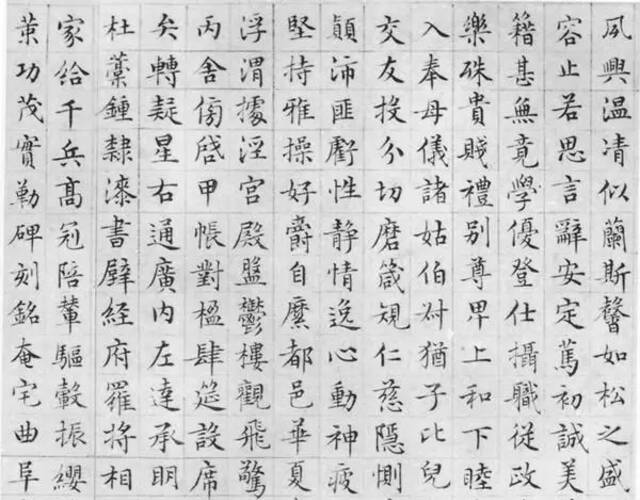 夙興温清似蘭斯馨如松之盛
容止若思言辭安定篤初誠美
籍甚無竟學優登仕攝職從政
樂殊貴賤禮別尊卑上和下睦
入奉母儀諸姑伯叔猶子比兒
交友投分切磨箴規仁慈隱惻
顛沛匪虧性静情逸心動神疲
堅持雅操好爵自縻都邑華夏
浮渭據涇宫殿盤鬱樓觀飛驚
丙舍傍啓甲帳對楹肆筵設席
矣轉疑星右通廣内左達承明
杜藁鍾隸漆書壁經府羅將相
家給千兵高冠陪輦驅轂振纓
策功茂實勒碑刻銘奄宅曲阜